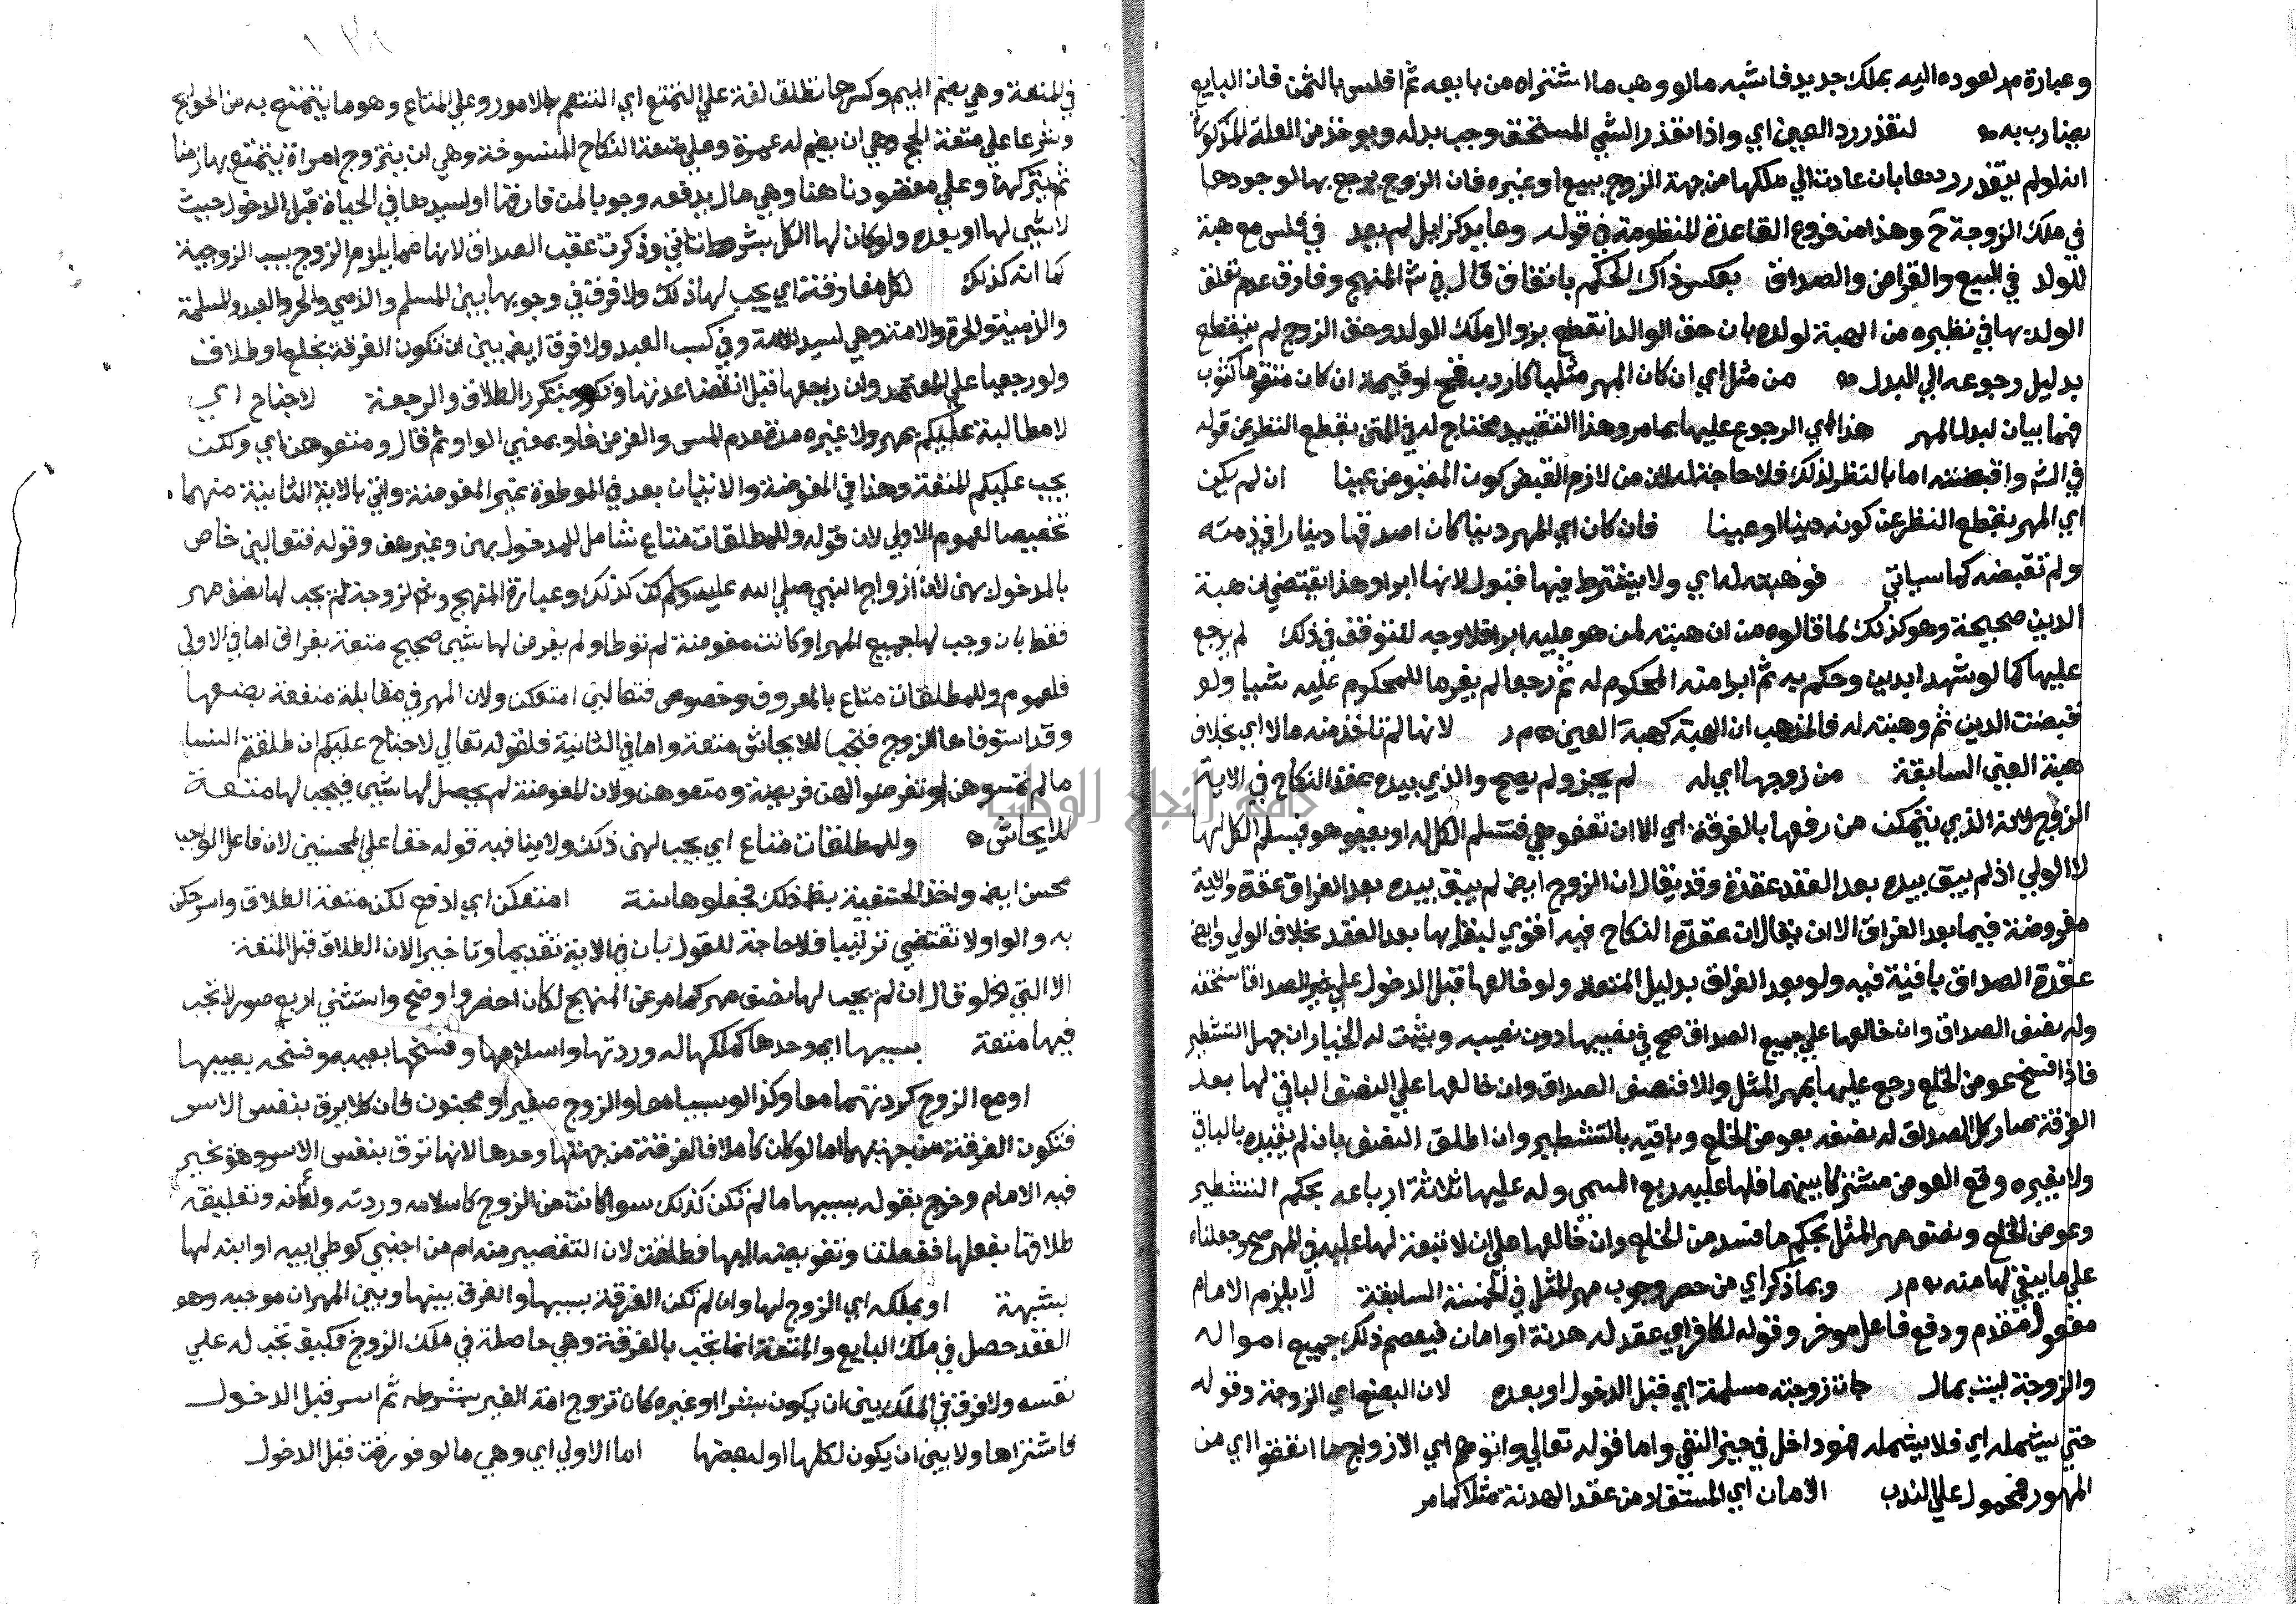 وعبارة م ر لعوده اليه بملك جديد فاشبه مالو وهب ما اشتراه من بايعه ثم افلس بالثمن فان البايع
يضارب به ه لتعذر رد العين اي واذا تعذر الشي المستحق وجب بدله ويوخذ من العلة المذكورة
انه لو لم يتعذر ردها بان عادت الي ملكها من جهة الزوج ببيع او غيره فان الزوج يرجع بها لوجودها
في ملك الزوجة ح وهذا من فروع القاعدة المنظومة في قوله وعايد كزايل لم يعد في فلس مع هبة
للولد في البيع والقراض والصداق بعكس ذاك الحكم باتفاق قال في ش المنهج وفارق عدم تعلق
الولد بها في نظيره من الهبة لولده بان حق الوالد انقطع بزوال ملك الولد وحق الزوج لم ينقطع
بدليل رجوعه الي البدل ه من مثل اي ان كان المهر مثليا كاردب قمح او قيمة ان كان متقوما كثوب
فهما بيان لبدل المهر هذا اي الرجوع عليها بما مر وهذا التقييد محتاج له في المتن بقطع النظر عن قوله
في الش واقبضته اما بالنظر لذلك فلا حاجة له لان من لازم القبض كون المقبوض عينا ان لم يكن
اي المهر بقطع النظر عن كونه دينا او عينا فان كان اي المهر دينا كان اصدقها دينارا في ذمته
ولم تقبضه كما سياتي فوهبته له اي ولا يشترط فيها قبول لانها ابرا وهذا يقتضي ان هبة
الدين صحيحة وهو كذلك لما قالوه من ان هبته لمن هو عليه ابرا فلا وجه للتوقف في ذلك لم يرجع
عليها كما لو شهدا بدين وحكم به ثم ابرا منه المحكوم له ثم رجعا لم يغرما للمحكوم عليه شيا ولو
قبضت الدين ثم وهبته له فالمذهب ان الهبة كهبة العين ه م ر لانها لم تاخذ منه مالا اي بخلاف
هبة العين السابقة من زوجها اي له لم يجز ولم يصح والذي بيده عقد النكاح في الاية
الزوج لانه الذي يتمكن من رفعها بالفرقة اي الا ان تعفو هي فتسلم الكل له او يعفو هو فيسلم الكل لها
لا الولي اذ لم يبق بيده بعد العقد عقدة وقد يقال ان الزوج ايض لم يبق بيده بعد الفراق عقدة والاية
مفروضة فيما بعد الفراق الا ان يقال ان عقدة النكاح فيه اقوي لبقايها بعد العقد بخلاف الولي وايض
عقدة الصداق باقية فيه ولو بعد الفراق بدليل المتعة ولو خالعها قبل الدخول علي غير الصداق استحقه
وله نصف الصداق وان خالعها علي جميع الصداق صح في نصيبها دون نصيبه ويثبت له الخيار ان جهل التشطير
فاذا فسخ عوض الخلع رجع عليها بمهر المثل والا فنصف الصداق وان خالعها علي النصف الباقي لها بعد
الفرقة صار كل الصداق له نصفه بعوض الخلع وباقيه بالتشطير وان اطلق النصف بان لم يقيده بالباقي
ولا بغيره وقع العوض مشتركا بينهما فلها عليه ربع المسمي وله عليها ثلاثة ارباعه بحكم التشطير
وعوض الخلع ونصف مهر المثل بحكم ما فسد من الخلع وان خالعها علي ان لا تبعة لها عليه في المهر صح وجعلناه
علي ما يبقي لها منه ه م ر وبما ذكر اي من حصر وجوب مهر المثل في الخمسة السابقة لا يلزم الامام
مفعول مقدم ودفع فاعل موخر وقوله لكافر اي عقد له هدنة او امان فيعصم ذلك جميع امواله
والزوجة ليست بمال جات زوجته مسلمة اي قبل الدخول او بعده لان البضع اي الزوجة وقوله
حتي يشمله اي فلا يشمله فهو داخل في حيز النفي واما قوله تعالي واتوهم اي الازواج ما انفقوا اي من
المهور فمحمول علي الندب الامان اي المستفاد من عقد الهدنة مثلا كما مر
في المتعة وهي بضم الميم وكسرها تطلق لغة علي التمتع اي التنعم بالامور وعلي المتاع وهو ما يتمتع به من الحوايج
وشرعا علي متعة الحج وهي ان يضم له عمرة وعلي متعة النكاح المنسوخة وهي ان يتزوج امراة يتمتع بها زمنا
ثم يتركها وعلي مقصودنا هنا وهي مال يدفعه وجوبا لمن فارقها او لسيدها في الحياة قبل الدخول حيث
لا شي لها او بعده ولو كان لها الكل بشروط تاتي وذكرت عقب الصداق لانها مما يلزم الزوج بسبب الزوجية
كما انه كذلك لكل مفارقة اي يجب لها ذلك ولا فرق في وجوبها بين المسلم والذمي والحر والعبد والمسلمة
والذمية والحرة والامة وهي لسيد الامة وفي كسب العبد ولا فرق ايض بين ان تكون الفرقة بخلع او طلاق
ولو رجعيا علي المعتمد وان راجعها قبل انقضا عدتها وتكرر بتكرر الطلاق والرجعة لا جناح اي
لا مطالبة عليكم بمهر ولا غيره مدة عدم المس والفرض فاو بمعني الواو ثم قال ومتعوهن اي ولكن
يجب عليكم المتعة وهذا في المفوضة والاتيان بعد في الموطوة غير المفوضة واتي بالاية الثانية منهما
تخصيصا لعموم الاولي لان قوله وللمطلقات متاع شامل للمدخول بهن وغيرهن وقوله فتعالين خاص
بالمدخول بهن لان ازواج النبي صلي الله عليه وسلم كن كذلك وعبارة المنهج وش لزوجة لم يجب لها نصف مهر
فقط بان وجب لها جميع المهر او كانت مفوضة لم توطا ولم يفرض لها شي صحيح متعة بفراق اما في الاولي
فلعموم وللمطلقات متاع بالمعروف وخصوص فتعالين امتعكن ولان المهر في مقابلة منفعة بضعها
وقد استوفاها الزوج فتجب للايحاش متعة واما في الثانية فلقوله تعالي لا جناح عليكم ان طلقتم النسا
ما لم تمسوهن او تفرضوا لهن فريضة ومتعوهن ولان المفوضة لم يحصل لها شي فيجب لها متعة
للايحاش ه وللمطلقات متاع اي يجب لهن ذلك ولا ينافيه قوله حقا علي المحسنين لان فاعل الواجب
محسن ايض واخذ الحنفية بظ ذلك فجعلوها سنة امتعكن اي ادفع لكن متعة الطلاق واسرحكن
به والواو لا تقتضي ترتيبا فلا حاجة للقول بان في الاية تقديما وتاخيرا لان الطلاق قبل المتعة
الا التي الخ لو قال ان لم يجب لها نصف مهر كما مر عن المنهج لكان اخصر واوضح واستثني اربع صور لا تجب
فيها متعة بسببها اي وحدها كملكها له وردتها واسلامها وفسخها بعيبه وفسخه بعيبها
او مع الزوج كردتهما معا وكذا لو سبيا معا والزوج صغير او مجنون فان كلا يرق بنفس الاسر
فتكون الفرقة من جهتهما اما لو كان كاملا فالفرقة من جهتها وحدها لانها ترق بنفس الاسر وهو تخير
فيه الامام وخرج بقوله بسببها ما لم تكن كذلك سوا كانت من الزوج كاسلامه وردته ولعانه وتعليقه
طلاقها بفعلها ففعلت وتفويضه اليها فطلقت لان التقصير منه ام من اجنبي كوطي ابيه او ابنه لها
بشبهة او بملكه اي الزوج لها وان لم تكن الفرقة بسببها والفرق بينها وبين المهر ان موجبه وهو
العقد حصل في ملك البايع والمتعة انما تجب بالفرقة وهي حاصلة في ملك الزوج فكيف تجب له علي
نفسه ولا فرق في الملك بين ان يكون بشرا او غيره كان تزوج امة الغير بشرطه ثم اسر قبل الدخول
فاشتراها ولا بين ان يكون لكلها او لبعضها اما الاولي اي وهي ما لو فورقت قبل الدخول
جامعة النجاح الوطنية